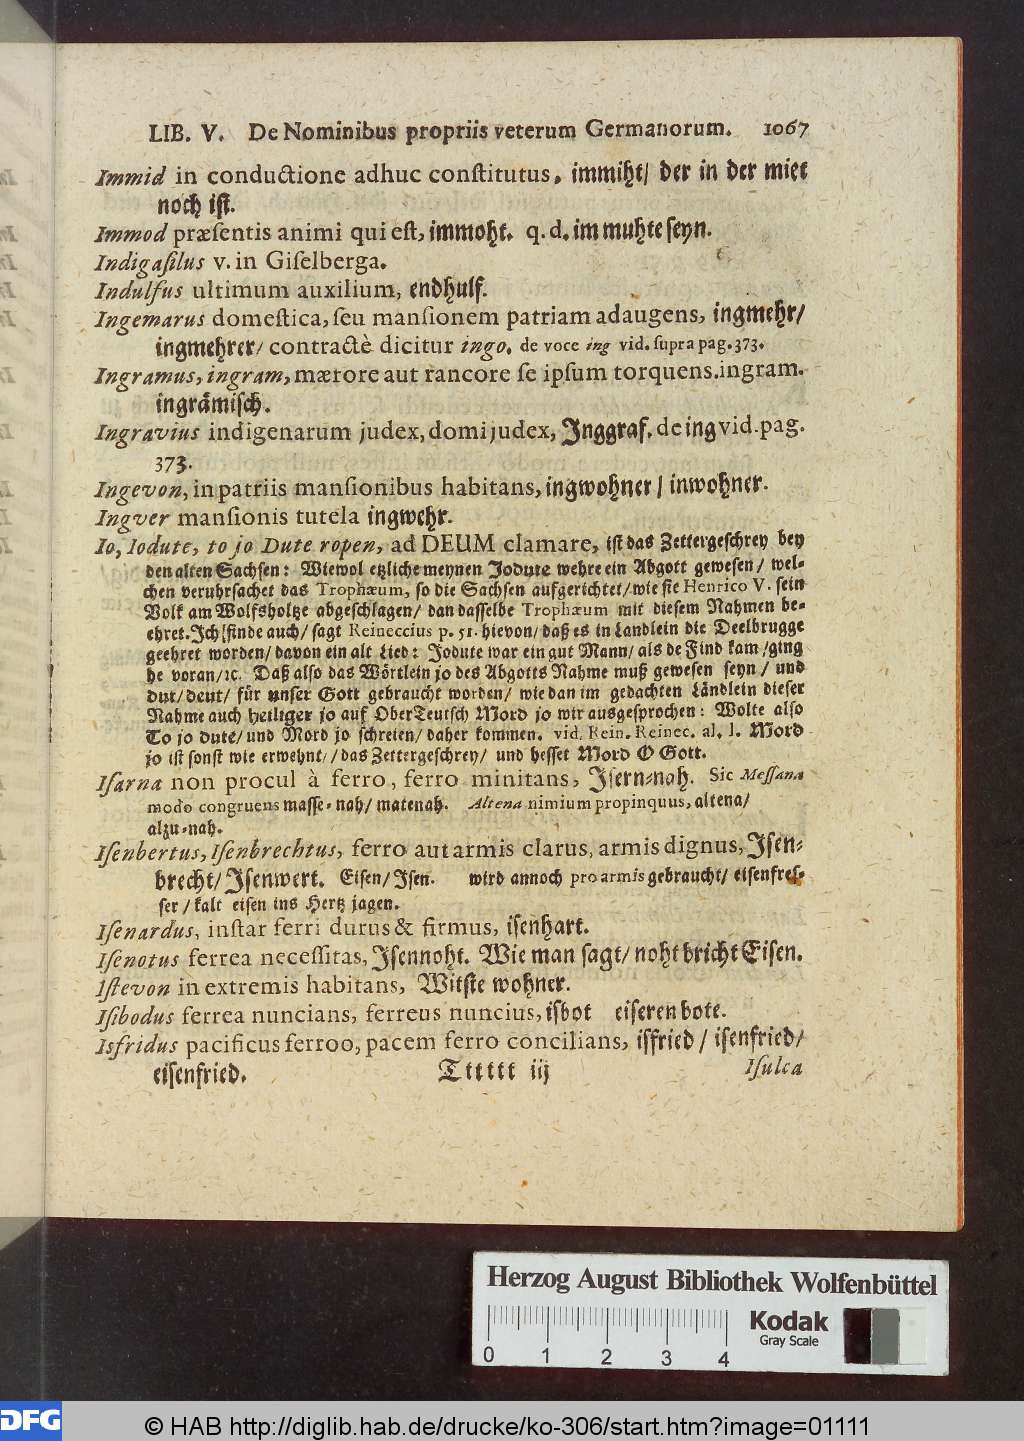 LIB. V. De Nominibus propriis veterum Germanorum. 1067
Immid in conductione adhuc constitutus, immiht/ der in der miet
noch ist.
Immod præsentis animi qui est, immoht. q. d. im muhte seyn.
Indigasilus v. in Giselberga.
Indulfus ultimum auxilium, endhulf.
Ingemarus domestica, seu mansionem patriam adaugens, ingmehr/
ingmehrer/ contractè dicitur ingo. de voce ing vid. supra pag. 373.
Ingramus, ingram, mærore aut rancore se ipsum torquens. ingram.
ingrämisch.
Ingravius indigenarum judex, domi judex, Jnggraf. de ing vid. pag.
373.
Ingevon, in patriis mansionibus habitans, ingwohner / inwohner.
Ingver mansionis tutela ingwehr.
Io, Iodute, to jo Dute ropen, ad DEUM clamare, ist das Zettergeschrey bey
den alten Sachsen: Wiewol etzliche meynen Jodute wehre ein Abgott gewesen / wel-
chen veruhrsachet das Trophæum, so die Sachsen aufgerichtet/ wie sie Henrico V. sein
Volk am Wolfsholtze abgeschlagen/ dan dasselbe Trophæum mit diesem Nahmen be-
ehret. Ich finde auch/ sagt Reineccius p. 51. hievon/ daß es in Landlein die Deelbrugge
geehret worden/ davon ein alt Lied: Jodute war ein gut Mann/ als de Find kam /ging
he voran/ꝛc. Daß also das Wörtlein jo des Abgotts Nahme muß gewesen seyn / und
dut/ deut/ für unser Gott gebraucht worden/ wie dan im gedachten Ländlein dieser
Nahme auch heiliger jo auf Ober Teutsch Mord jo wir ausgesprochen: Wolte also
To jo dute/ und Mord jo schreien/ daher kommen. vid. Rein. Reinec. al. l. Mord
jo ist sonst wie erwehnt/ /das Zettergeschrey/ und hesset Mord O Gott.
Isarna non procul à ferro, ferro minitans, Jsern-nah. Sic Messana
modo congruens masse-nah/ matenah. Altena nimium propinquus, altena/
alzu-nah.
Isenbertus, Isenbrechtus, ferro aut armis clarus, armis dignus, Jsen-
brecht/ Jsenwert. Eisen/ Jsen. wird annoch pro armis gebraucht/ eisenfres-
ser / kalt eisen ins Hertz jagen.
Isenardus, instar ferri durus & firmus, isenhart.
Isenotus ferrea necessitas, Jsennoht. Wie man sagt/ noht bricht Eisen.
Istevon in extremis habitans, Witste wohner.
Isibodus ferrea nuncians, ferreus nuncius, isbot eiseren bote.
Isfridus pacificus ferroo, pacem ferro concilians, isfried / isenfried/
eisenfried. Tttttt iij Isulca
Herzog August Bibliothek Wolfenbüttel
0 1 2 3 4
Kodak
Gray Scale
DFG © HAB http://diglib.hab.de/drucke/ko-306/start.htm?image=01111